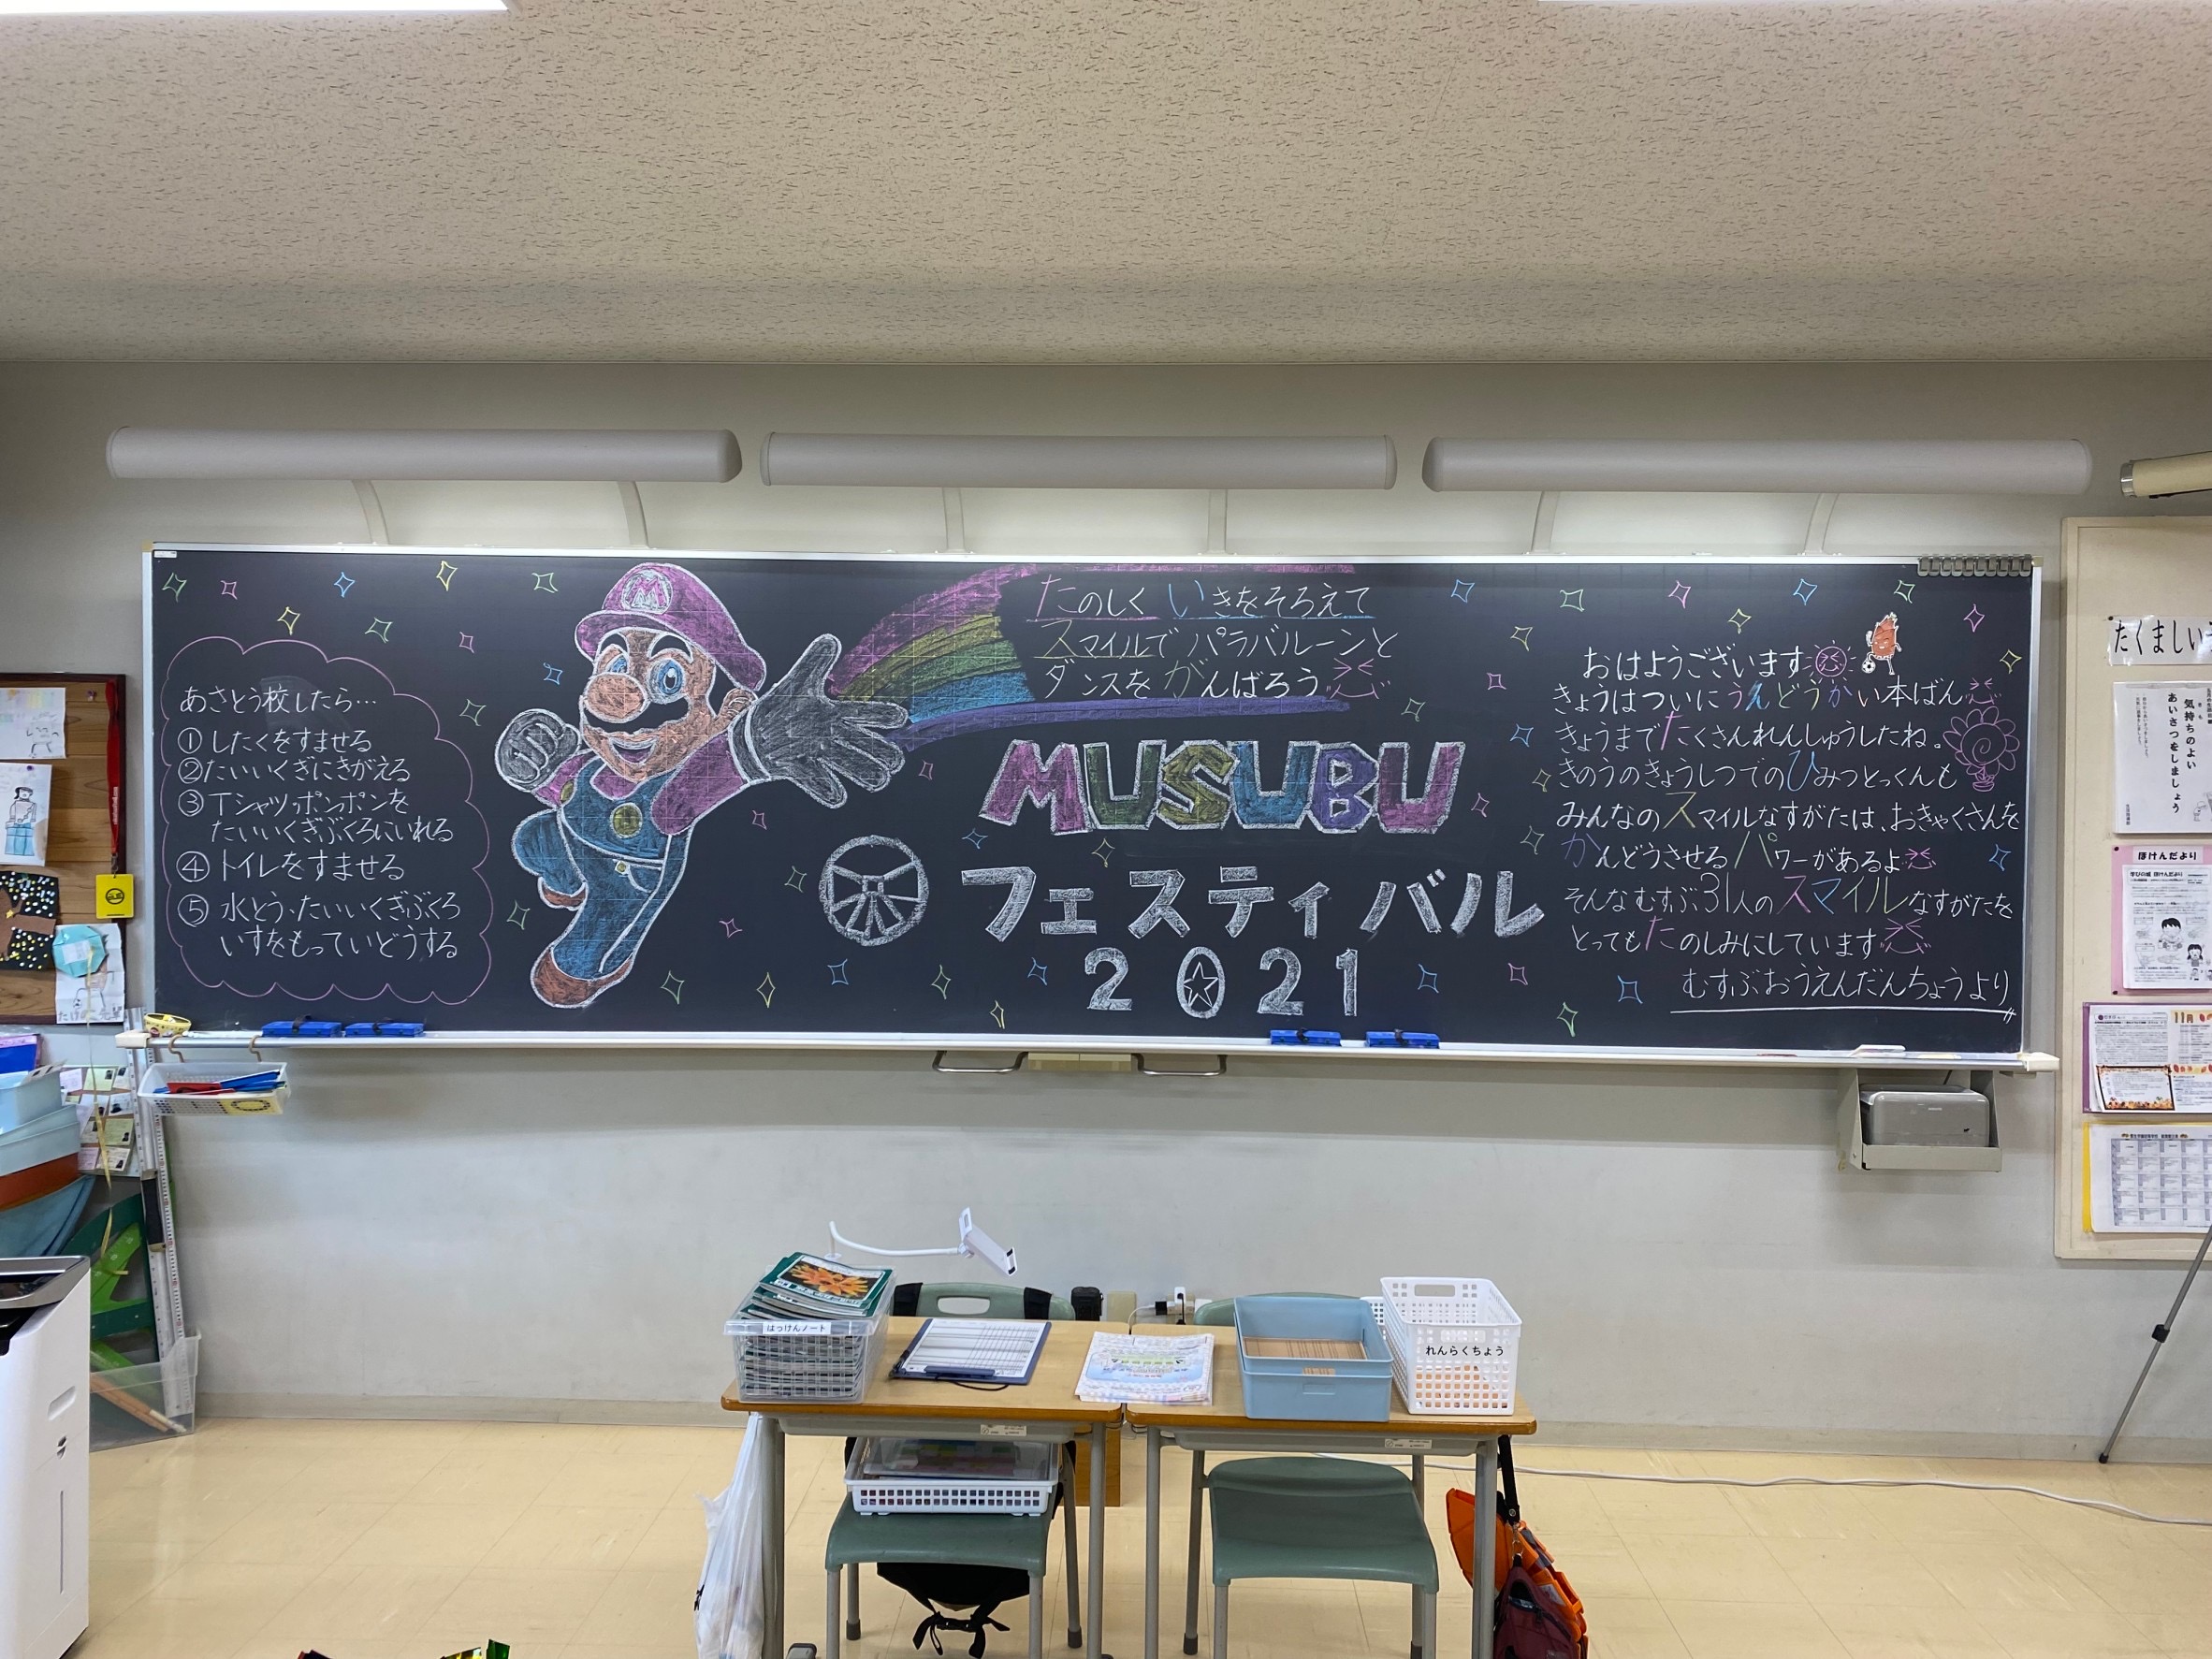 あさとう校したら…
①したくをすませる
②たいいくぎにきがえる
③Tシャツ、ポンポンを
たいいくぎぶくろにいれる
④トイレをすませる
⑤水とう、たいいくぎぶくろ
いすをもっていどうする
M
たのしく いきをそろえて
スマイルで パラバルーンと
ダンスを がんばろう
MUSUBU
フェスティバル
2021
おはようございます
きょうはついにうんどうかい本ばん
きょうまでたくさんれんしゅうしたね。
きのうのきょうしつでのひみつとっくんも
みんなのスマイルなすがたは、おきゃくさんを
かんどうさせるパワーがあるよ
そんなむすぶ31人のスマイルなすがたを
とってもたのしみにしています
むすぶおうえんだんちょうより
たくましい
気持ちのよい
あいさつをしましょう
ほけんだより
11月
はっけんノート
れんらくちょう